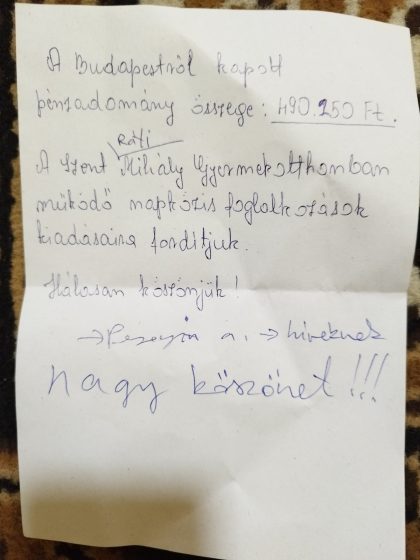 A Budapestről kapott
pénzadomány összege: 490.250 Ft.
Ráti
A Szent Mihály Gyermekotthonban
működő napközis foglalkozások
kiadásaira fordítjuk.
Hálásan köszönjük!
→ a. → híveknek
nagy köszönet!!!